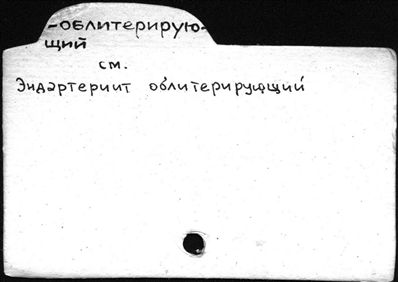 -облитерирую-
щий
см.
Эндартериит облитерирующий